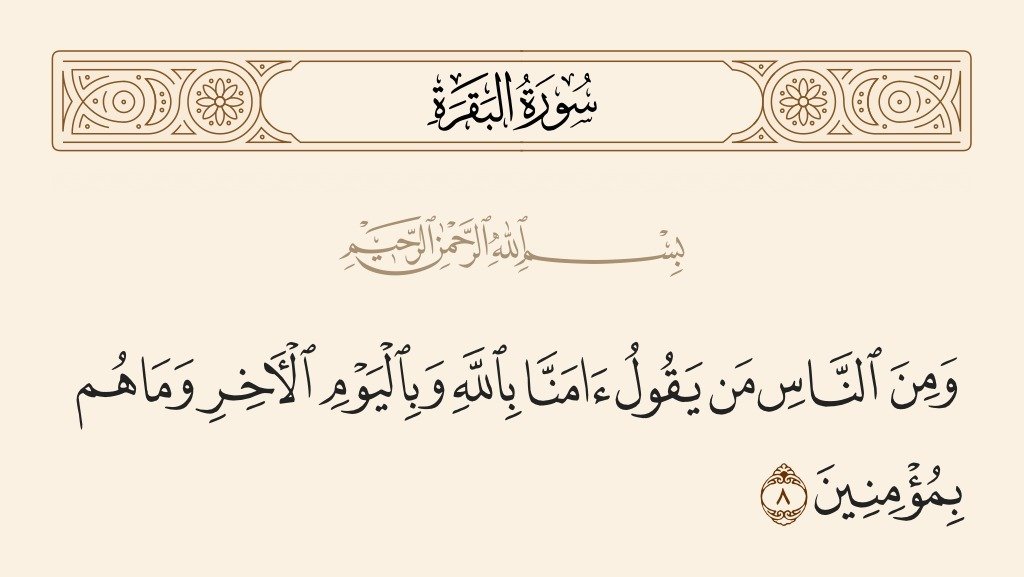 سُورَةُ البَقَرَةِ
بِسْمِ ٱللَّهِ ٱلرَّحْمَٰنِ ٱلرَّحِيمِ
وَمِنَ ٱلنَّاسِ مَن يَقُولُ ءَامَنَّا بِٱللَّهِ وَبِٱلْيَوْمِ ٱلْأَخِرِ وَمَا هُم
بِمُؤْمِنِينَ ٨